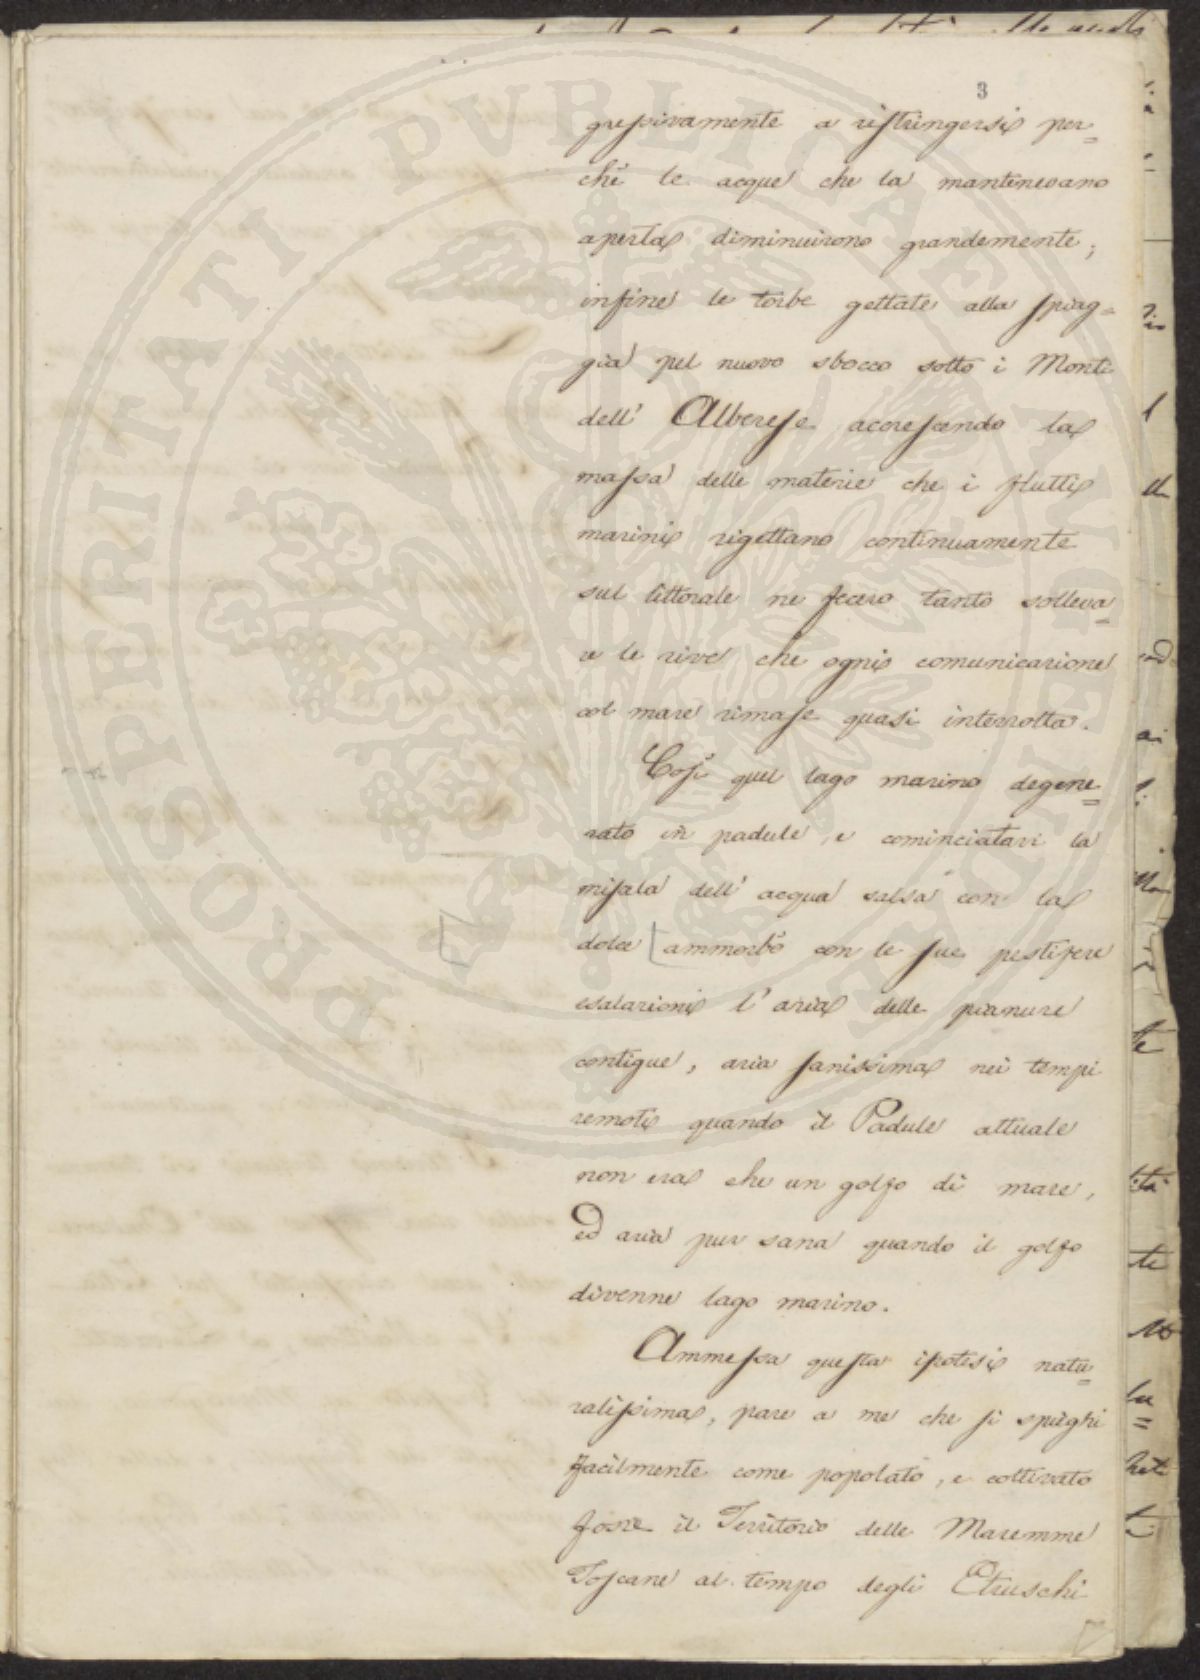 3
gressivamente a ristringersi per=
chè le acque che la mantenevano
aperta diminuirono grandemente;
infine le torbe gettate alla spiag=
gia pel nuovo sbocco sotto i Monti
dell' Alberese accrescendo la
massa delle materie che i flutti
marini rigettano continuamente
sul littorale ne fecero tanto solleva=
re le rive che ogni comunicazione
col mare rimase quasi interrotta.
Così quel lago marino degene=
rato in padule, e cominciatavi la
misala dell' acqua salsa con la
dolce ammorbò con le sue pestifere
esalazioni l' aria delle pianure
contigue, aria sanissima nei tempi
remoti quando il Padule attuale
non era che un golfo di mare,
ed aria pur sana quando il golfo
divenne lago marino.
Ammessa questa ipotesi natu=
ralissima, pare a me che si spieghi
facilmente come popolato, e coltivato
fosse il Territorio delle Maremme
Toscane al tempo degli Etruschi
PROSPERITATI PVBLICAE AVGENDAE